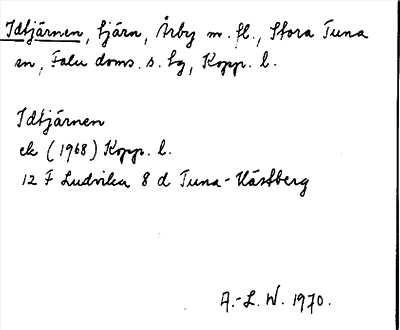 Idtjärnen, tjärn, Årby m. fl., Stora Tuna
sn, Falu doms. s. tg, Kopp. l.
Idtjärnen
ek (1968) Kopp. l.
12 F Ludvika 8 d Tuna-Hästberg
A.-L. W. 1970.